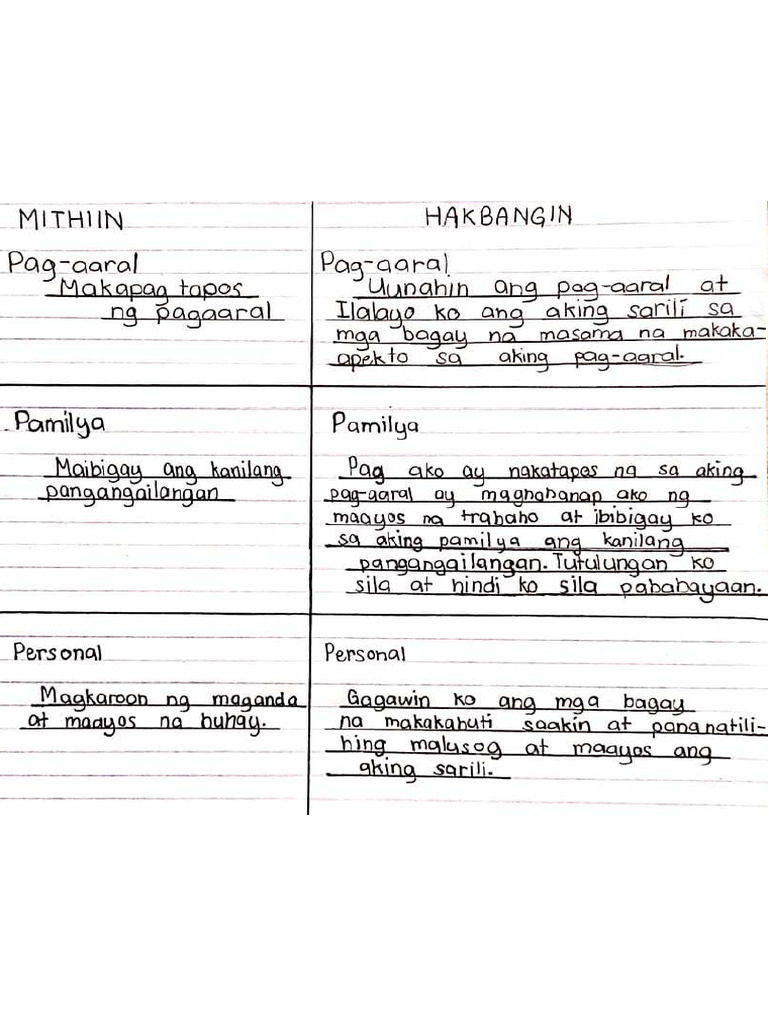 MITHIIN
HAKBANGIN
Pag-aaral
Makapag tapos
ng pagaaral
Pag-aaral
Uunahin ang pag-aaral at
Ilalayo ko ang aking sarili sa
mga bagay na masama na makaka-
apekto sa aking pag-aaral.
Pamilya
Maibigay ang kanilang
pangangailangan
Pamilya
Pag ako ay nakatapos na sa aking
pag-aaral ay maghahanap ako ng
maayos na trabaho at ibibigay ko
sa aking pamilya ang kanilang
pangangailangan. Tutulungan ko
sila at hindi ko sila pababayaan.
Personal
Magkaroon ng maganda
at maayos na buhay.
Personal
Gagawin ko ang mga bagay
na makakabuti saakin at pananatili-
hing malusog at maayos ang
aking sarili.